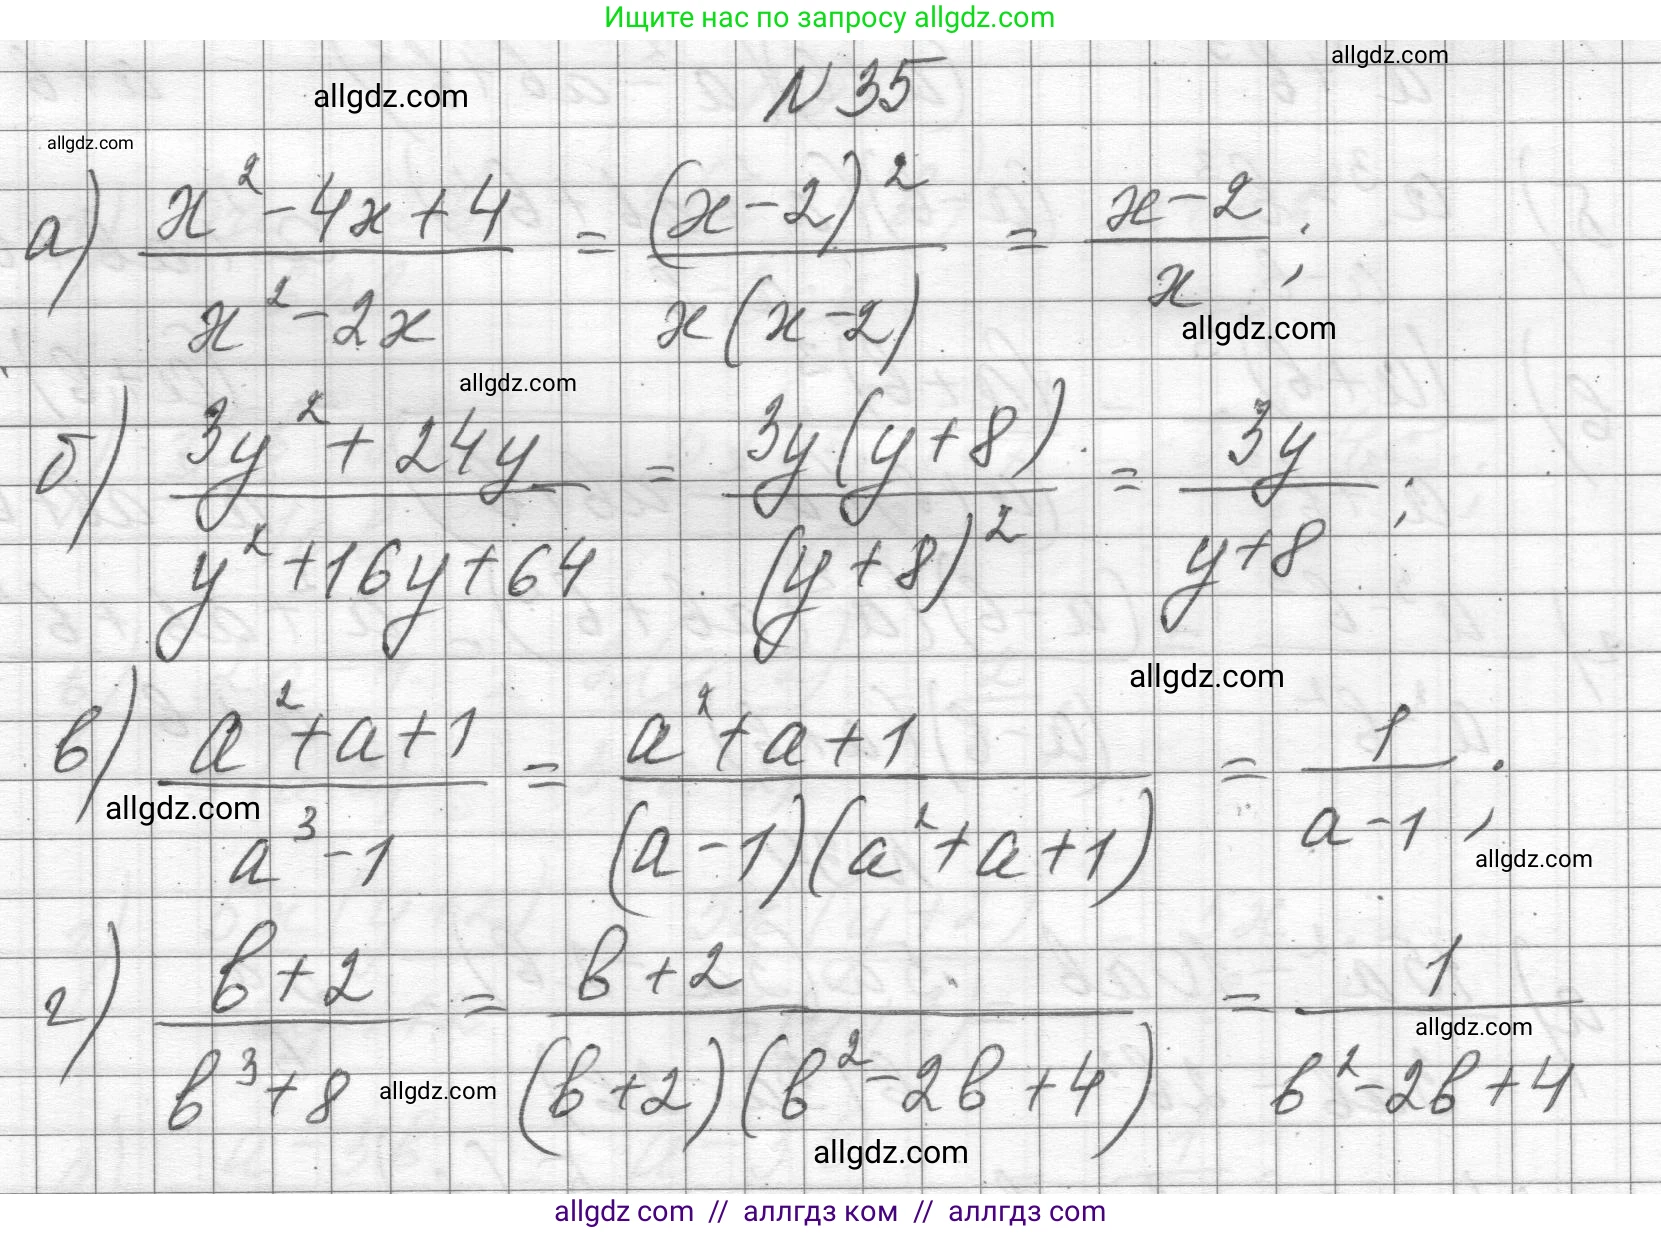 Ищите нас по запросу allgdz.com
allgdz.com
allgdz.com
N 35
allgdz.com
а) (x² - 4x + 4)/(x² - 2x) = (x - 2)²/(x(x - 2)) = (x - 2)/x ;
allgdz.com
allgdz.com
б) (3y² + 24y)/(y² + 16y + 64) = (3y(y + 8))/((y + 8)²) = 3y/(y + 8) ;
allgdz.com
в) (a² + a + 1)/(a³ - 1) = (a² + a + 1)/((a - 1)(a² + a + 1)) = 1/(a - 1) ;
allgdz.com
allgdz.com
г) (b + 2)/(b³ + 8) = (b + 2)/((b + 2)(b² - 2b + 4)) = 1/(b² - 2b + 4)
allgdz.com
allgdz.com
allgdz.com
allgdz com // аллгдз ком // аллгдз com